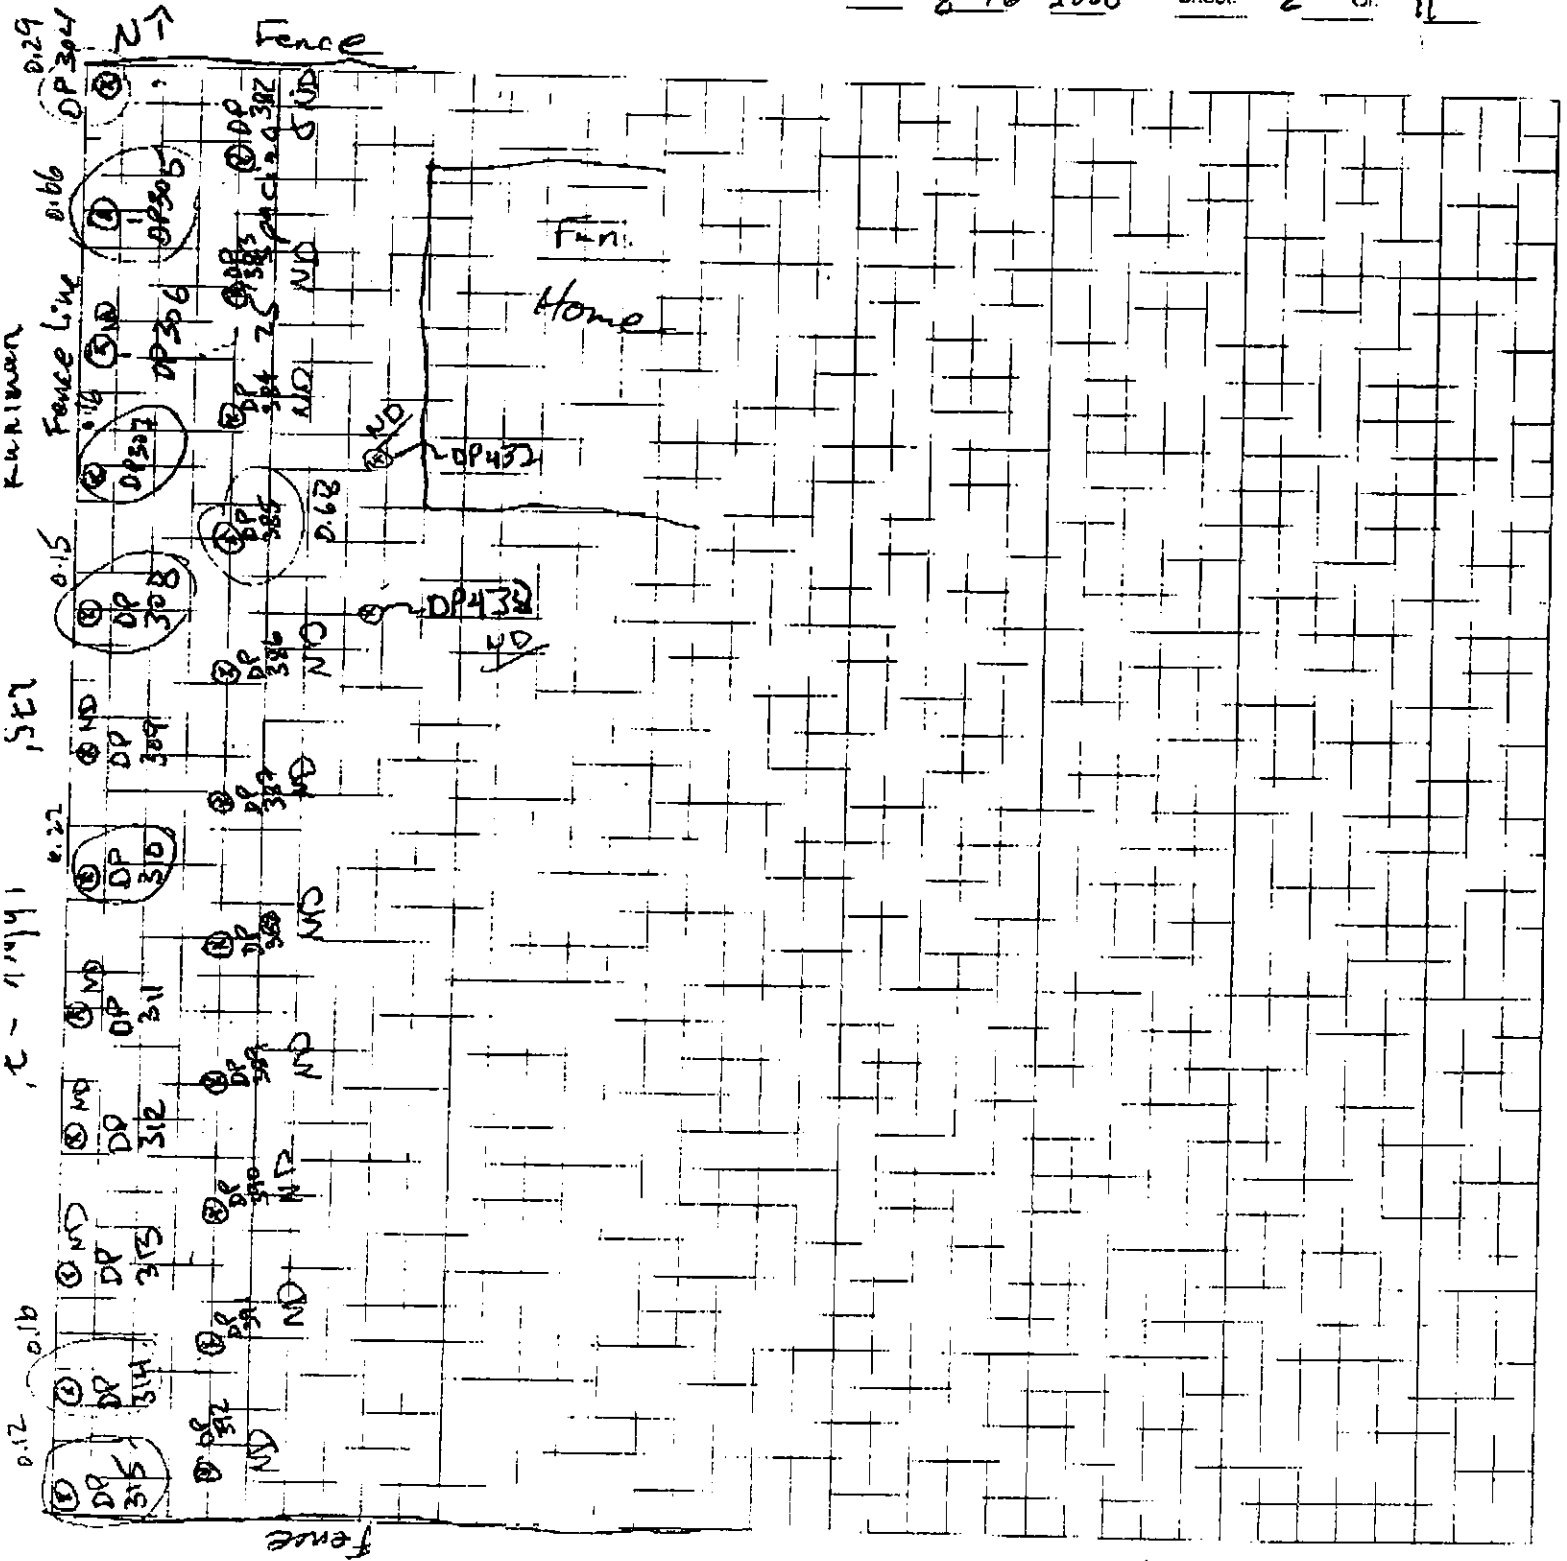 2000 Sheet 2 of 11
N
Fence
0.29
DP 304
0.66
DP305
Fence Line
ND
DP306
0.16
DP307
0.15
DP
308
ND
DP
309
0.22
DP
310
ND
DP
311
ND
DP
312
ND
DP
313
0.16
DP
314
0.12
DP
315
DP
382
ND
DP
383
ND
25 spaced
DP
384
ND
DP
385
0.68
DP
386
ND
DP
387
ND
DP
388
ND
DP
389
ND
DP
390
ND
DP
391
ND
DP
392
ND
Fun.
Home
ND
DP432
ND
Fence